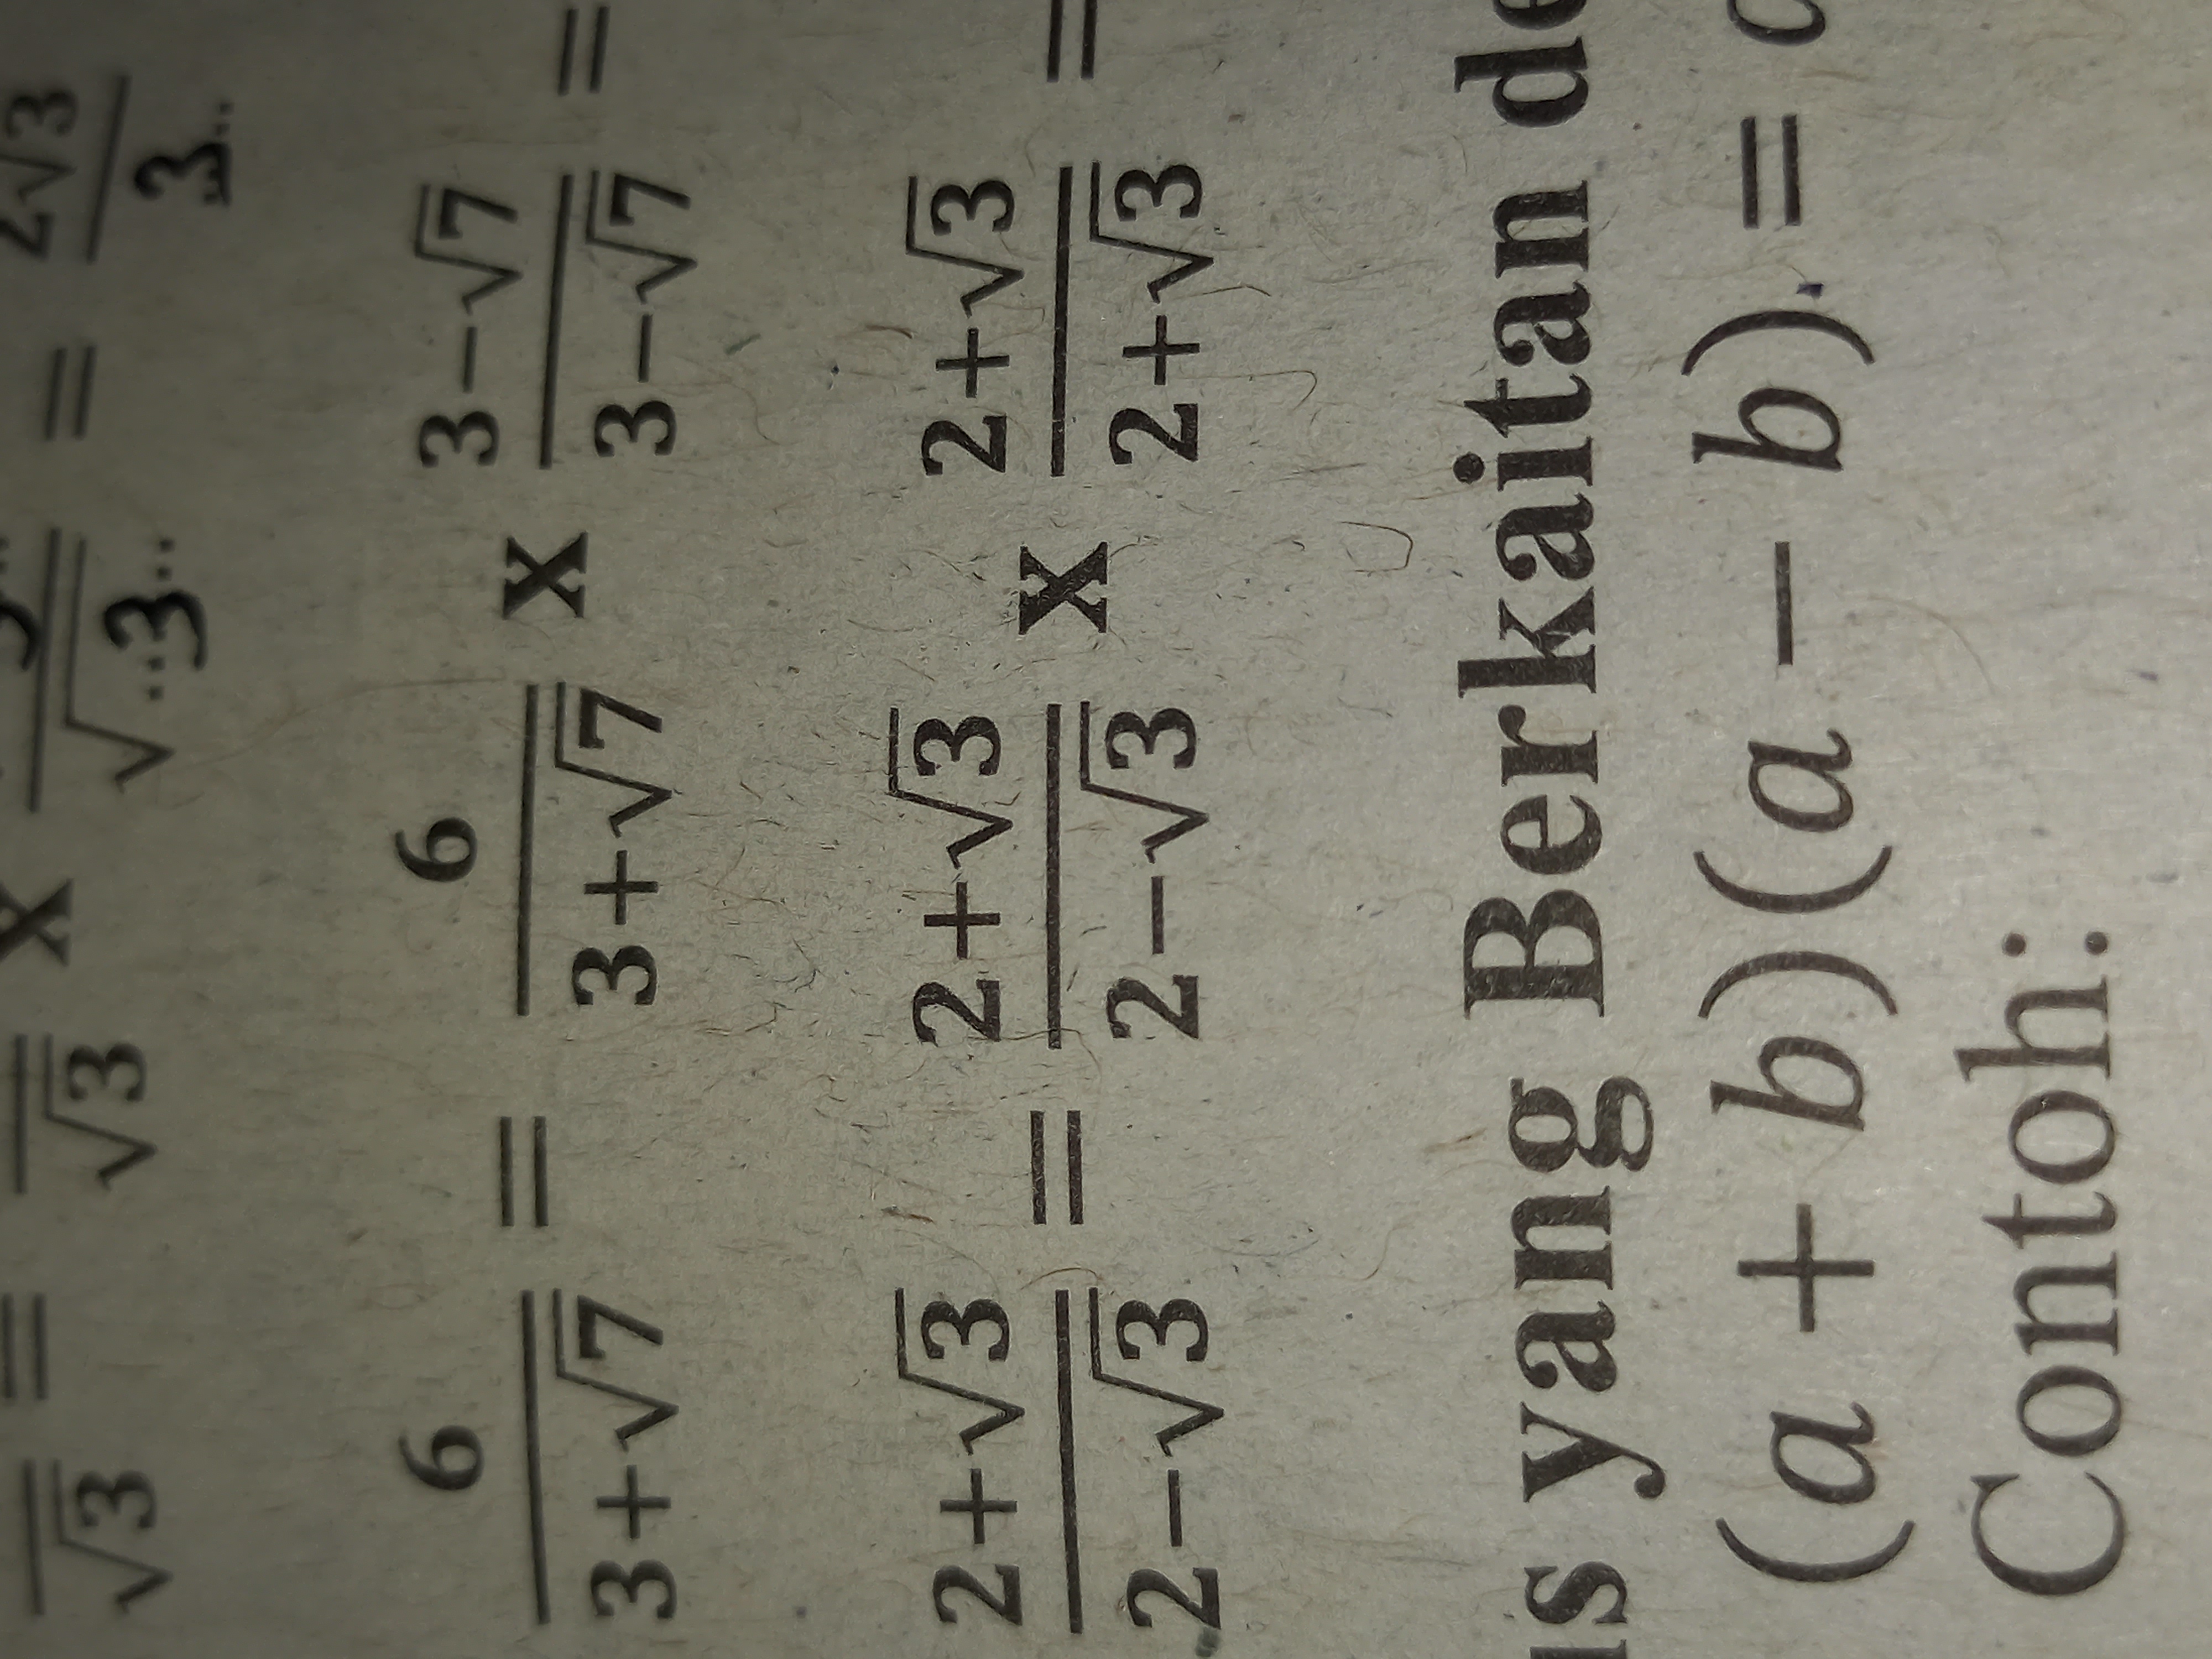 √3 = √3 x √..3.. = 2√3 / 3..
6 / 3+√7 = 6 / 3+√7 x 3−√7 / 3−√7 =
2+√3 / 2−√3 = 2+√3 / 2−√3 x 2+√3 / 2+√3 =
yang Berkaitan
(a + b)(a − b) =
Contoh: